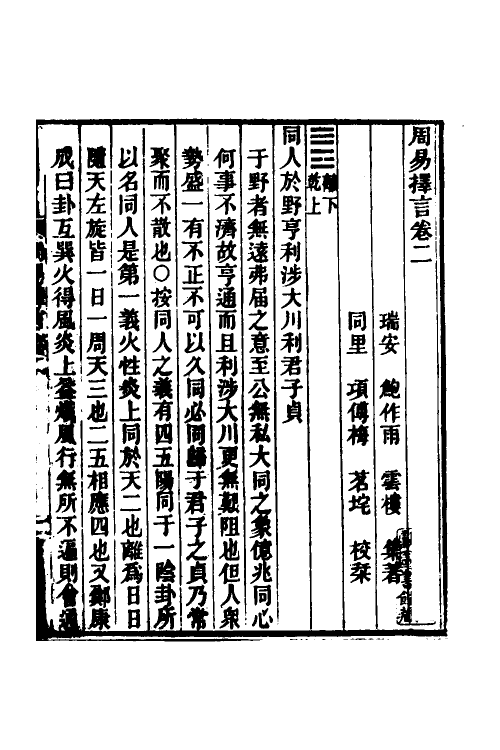 周易擇言卷二
瑞安 鮑作雨 雲樓 集著
同里 項傅梅 茗垞 校栞
離下
乾上
同人於野亨利涉大川利君子貞
于野者無遠弗届之意至公無私大同之象億兆同心
何事不濟故亨通而且利涉大川更無艱阻也但人眾
勢盛一有不正不可以久同必同歸于君子之貞乃常
聚而不散也○按同人之義有四五陽同于一陰卦所
以名同人是第一義火性炎上同於天二也離為日日
隨天左旋皆一日一周天三也二五相應四也又鄭康
成曰卦互巽火得風炎上益熾風行無所不遍則會通